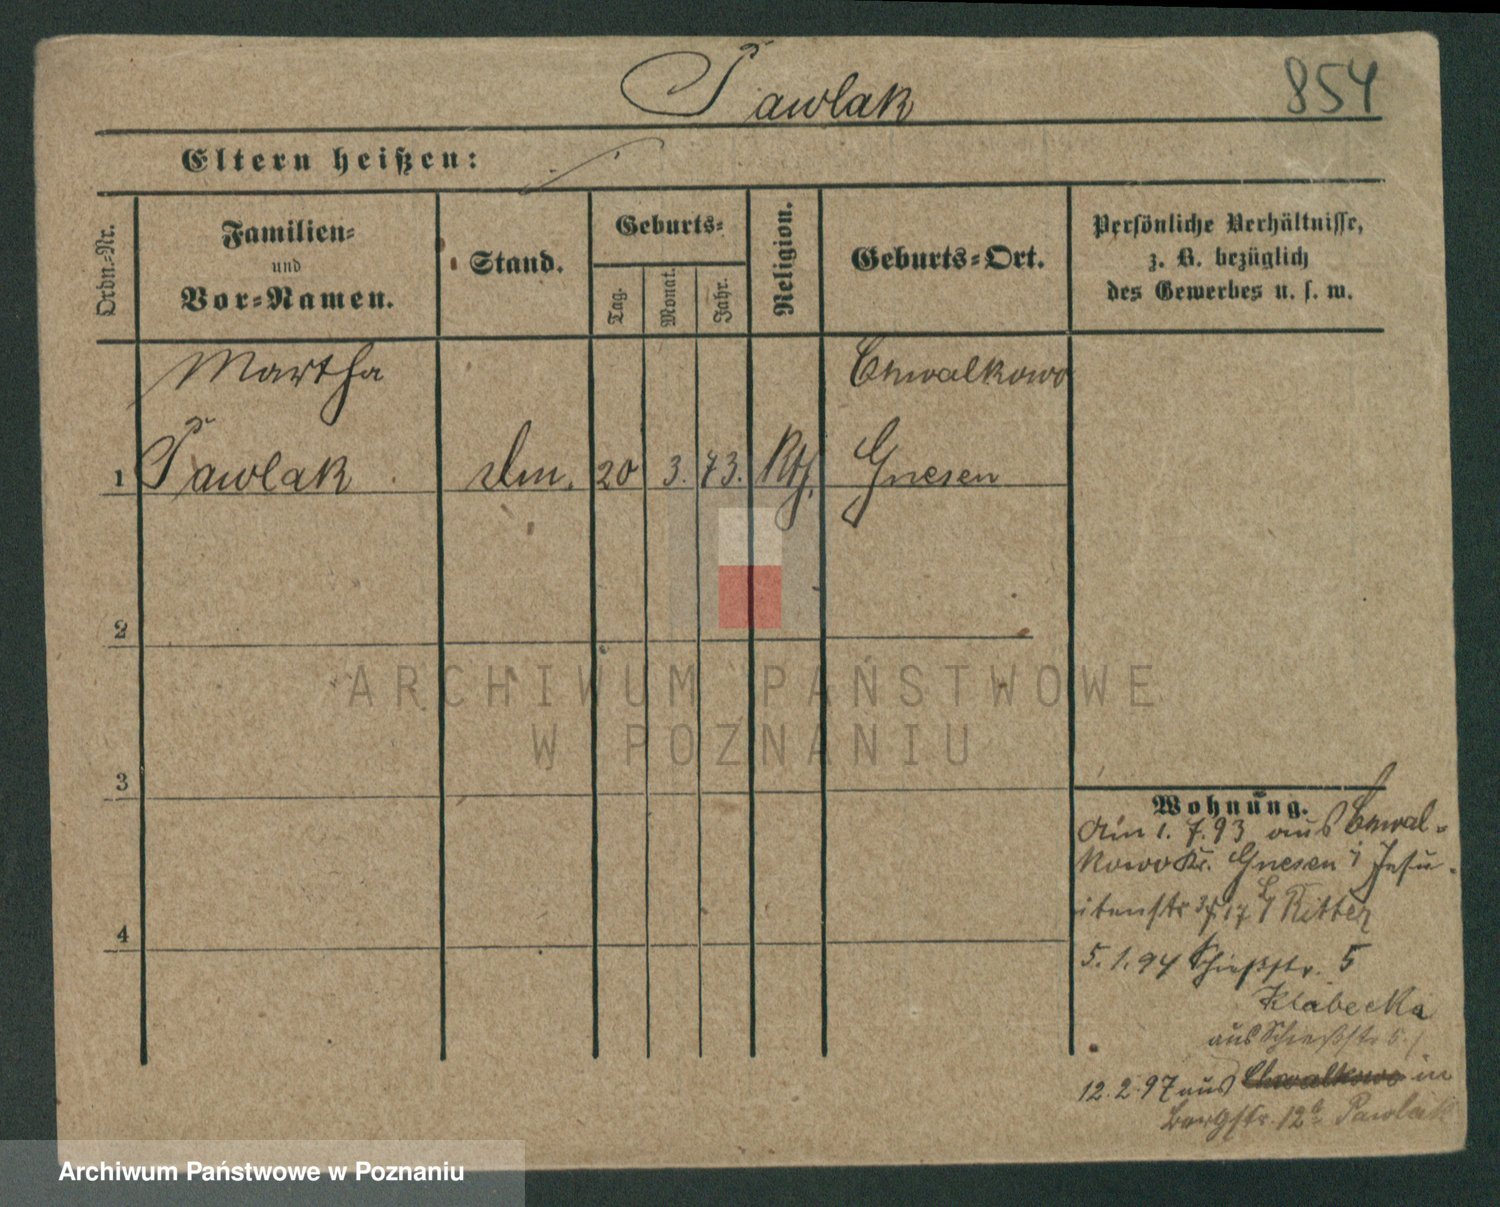 Pawlak
854
Eltern heißen:
Ordn.-Nr.
Familien-
und
Vor-Namen.
Stand.
Geburts-
Tag.
Monat.
Jahr.
Religion.
Geburts-Ort.
Persönliche Verhältnisse,
z. B. bezüglich
des Gewerbes u. s. w.
Martha
Chwalkowo
1 Pawlak 20 3. 73. Kth. Gnesen
2
3
4
Wohnung.
Am 1. 7. 93 aus Chwal-
kowo Kr. Gnesen i Jesu-
itenstr 17 Ritter
5. 1. 94 Schießstr. 5
Klabecka
aus Schießstr 5
12. 2. 97 aus Chwalkowo in
Bergstr. 12b Pawlak
ARCHIWUM PAŃSTWOWE
W POZNANIU
Archiwum Państwowe w Poznaniu